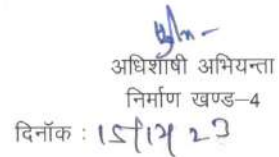 अधिशाषी अभियन्ता
निर्माण खण्ड–4
दिनॉक : 15/12/23